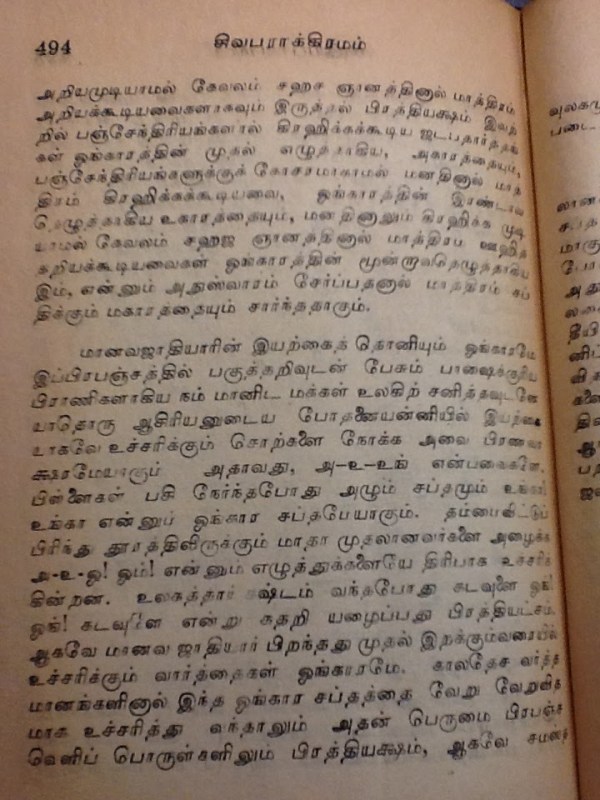 494 சிவபராக்கிரமம்
அறியமுடியாமல் கேவலம் சஹச ஞானத்தினால் மாத்திரம்
அறியக்கூடியவைகளாகவும் இருத்தல் பிரத்தியக்ஷம் இவற்
றில் பஞ்சேந்திரியங்களால் கிரஹிக்கக்கூடிய ஜடபதார்த்தங்
கள் ஓங்காரத்தின் முதல் எழுத்தாகிய, அகாரத்தையும்,
பஞ்சேந்திரியங்களுக்குக் கோசரமாகாமல் மனதினால் மாத்
திரம் கிரஹிக்கக்கூடியவை, ஓங்காரத்தின் இரண்டாவ
தெழுத்தாகிய உகாரத்தையும், மனதினாலும் கிரஹிக்க முடி
யாமல் கேவலம் சஹஜ ஞானத்தினால் மாத்திரம் ஊஹித்
தறியக்கூடியவைகள் ஓங்காரத்தின் மூன்றாவதெழுத்தாகிய
இம், என்னும் அதுஸ்வாரம் சேர்ப்பதனால் மாத்திரம் சப்
திக்கும் மகாரத்தையும் சார்ந்ததாகும்.
மானவஜாதியாரின் இயற்கைத் தொனியும் ஓங்காரமே
இப்பிரபஞ்சத்தில் பகுத்தறிவுடன் பேசும் பாஷைக்குரிய
பிராணிகளாகிய நம் மானிட மக்கள் உலகிற் சனித்தவுடனே
யாதொரு ஆசிரியனுடைய போதனையன்னியில் இயற்கை
யாகவே உச்சரிக்கும் சொற்களை நோக்க அவை பிரணவா
க்ஷரமேயாகும் அதாவது, அ-உ-உங் என்பவைகளே,
பிள்ளைகள் பசி நேர்ந்தபோது அழும் சப்தமும் உங்கா
உங்கா என்னும் ஓங்கார சப்தமேயாகும். தம்மைவிட்டுப்
பிரிந்து தூரத்திலிருக்கும் மாதா முதலானவர்களை அழைக்க
அ-உ-ஓ! ஓம்! என்னும் எழுத்துக்களையே திரிபாக உச்சரிக்
கின்றன. உலகத்தார் கஷ்டம் வந்தபோது கடவுளே ஓங்!
ஓங்! கடவுளே என்று கதறி யழைப்பது பிரத்தியட்சம்.
ஆகவே மானவ ஜாதியார் பிறந்தது முதல் இறக்கும்வரையில்
உச்சரிக்கும் வார்த்தைகள் ஓங்காரமே. காலதேச வர்த்த
மானங்களினால் இந்த ஓங்கார சப்தத்தை வேறு வேறுவித
மாக உச்சரித்து வந்தாலும் அதன் பெருமை பிரபஞ்ச
வெளிப் பொருள்களிலும் பிரத்தியக்ஷம், ஆகவே